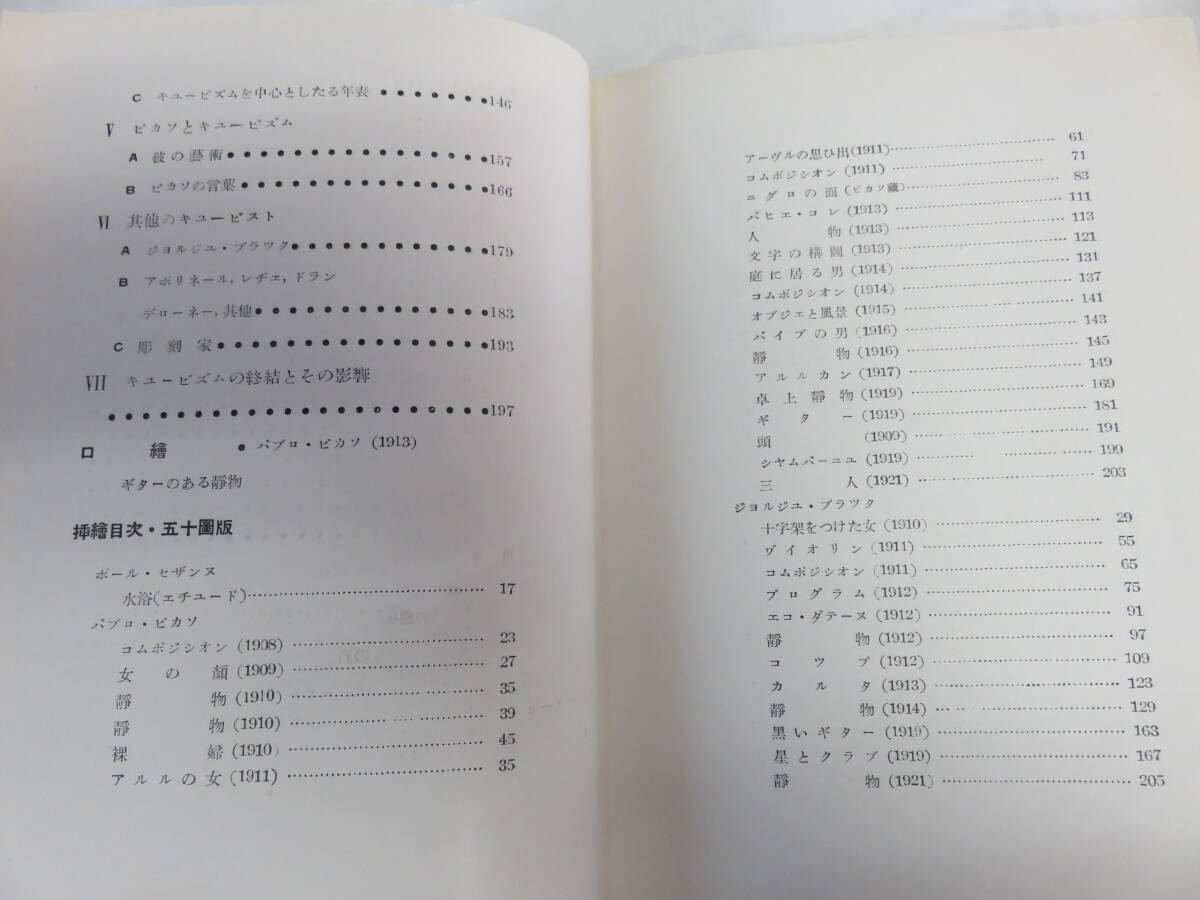 C キユービズムを中心としたる年表 ●●●●●●●146
V ピカソとキユービズム
A 彼の藝術●●●●●●●●●●●●●●●157
B ピカソの言葉●●●●●●●●●●●●●●166
VI 其他のキユービスト
A ジョルジユ・ブラツク●●●●●●●●●●●179
B アポリネール,レヂェ,ドラン
デローネー,其他●●●●●●●●●●●●●183
C 彫刻家●●●●●●●●●●●●●●●193
VII キユービズムの終結とその影響
●●●●●●●●●●●●●●●●●●●●●197
口繪 ● パブロ・ピカソ (1913)
ギターのある靜物
挿繪目次・五十圖版
ポール・セザンヌ
水浴(エチユード)…………………… 17
パブロ・ピカソ
コムポジシオン (1908) ………………… 23
女の顏 (1909) ………………… 27
靜物 (1910) ………………… 35
靜物 (1910) ………………… 39
裸婦 (1910) ………………… 45
アルルの女 (1911) ………………… 35
アーヴルの思ひ出(1911)………………… 61
コムポジシオン (1911) ………………… 71
ニグロの面 (ピカソ藏)………………… 83
パピエ・コレ (1913) ………………… 111
人物 (1913) ………………… 113
文字の構圖 (1913) ………………… 121
庭に居る男 (1914) ………………… 131
コムポジシオン (1914) ………………… 137
オブジエと風景 (1915) ………………… 141
パイプの男 (1916) ………………… 143
靜物 (1916) ………………… 145
アルルカン (1917) ………………… 149
卓上靜物 (1919) ………………… 169
ギター (1919) ………………… 181
頭 (1909) ………………… 191
シヤムパーニユ (1919) ………………… 199
三人 (1921) ………………… 203
ジョルジユ・ブラツク
十字架をつけた女 (1910) ………………… 29
ヴイオリン (1911) ………………… 55
コムポジシオン (1911) ………………… 65
プログラム (1912) ………………… 75
エコ・ダテーヌ (1912) ………………… 91
靜物 (1912) ………………… 97
コツプ (1912) ………………… 109
カルタ (1913) ………………… 123
靜物 (1914) ………………… 129
黒いギター (1919) ………………… 163
星とクラブ (1919) ………………… 167
靜物 (1921) ………………… 205